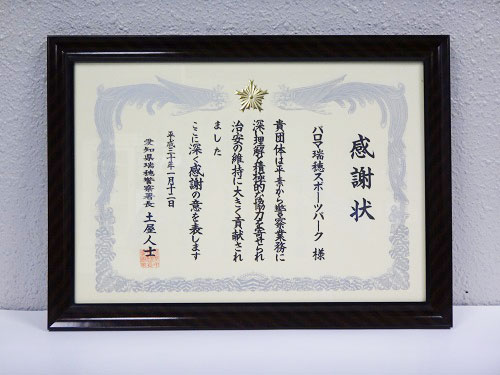 感謝状
パロマ瑞穂スポーツパーク 様
貴団体は平素から警察業務に
深い理解と積極的な協力を寄せられ
治安の維持に大きく貢献され
ました
ここに深く感謝の意を表します
平成三十年一月十二日
愛知県瑞穂警察署長 土屋人士